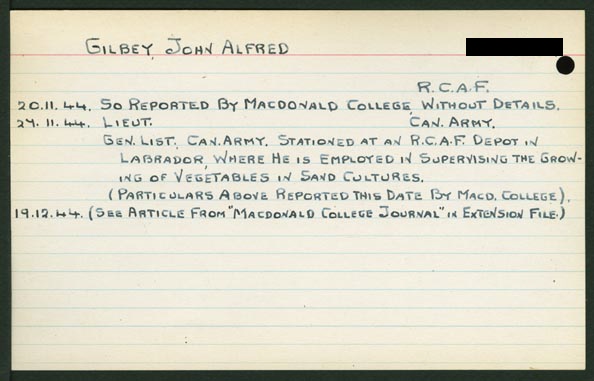 GILBEY, JOHN ALFRED
R.C.A.F.
20.11.44. SO REPORTED BY MACDONALD COLLEGE, WITHOUT DETAILS.
29.11.44. LIEUT. CAN. ARMY.
GEN. LIST, CAN. ARMY. STATIONED AT AN R.C.A.F. DEPOT IN
LABRADOR, WHERE HE IS EMPLOYED IN SUPERVISING THE GROW-
ING OF VEGETABLES IN SAND CULTURES.
(PARTICULARS ABOVE REPORTED THIS DATE BY MACD. COLLEGE).
19.12.44. (SEE ARTICLE FROM "MACDONALD COLLEGE JOURNAL" IN EXTENSION FILE.)